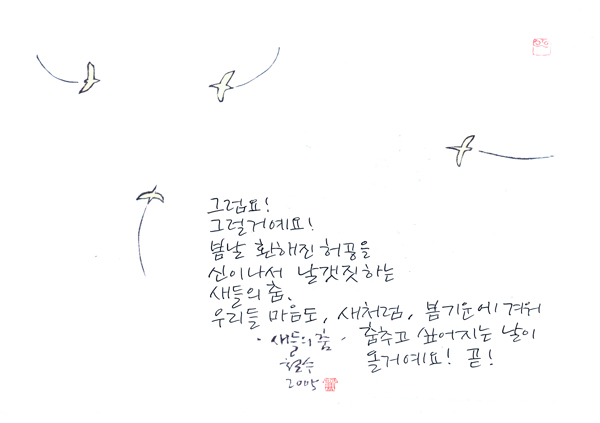 그럼요!
그럴거예요!
봄날 환해진 허공을
신이나서 날갯짓하는
새들의 춤.
우리들 마음도, 새처럼, 봄기운에 겨워
춤추고 싶어지는 날이
올거예요! 곧!
· 새들의 춤 ·
철수
2005